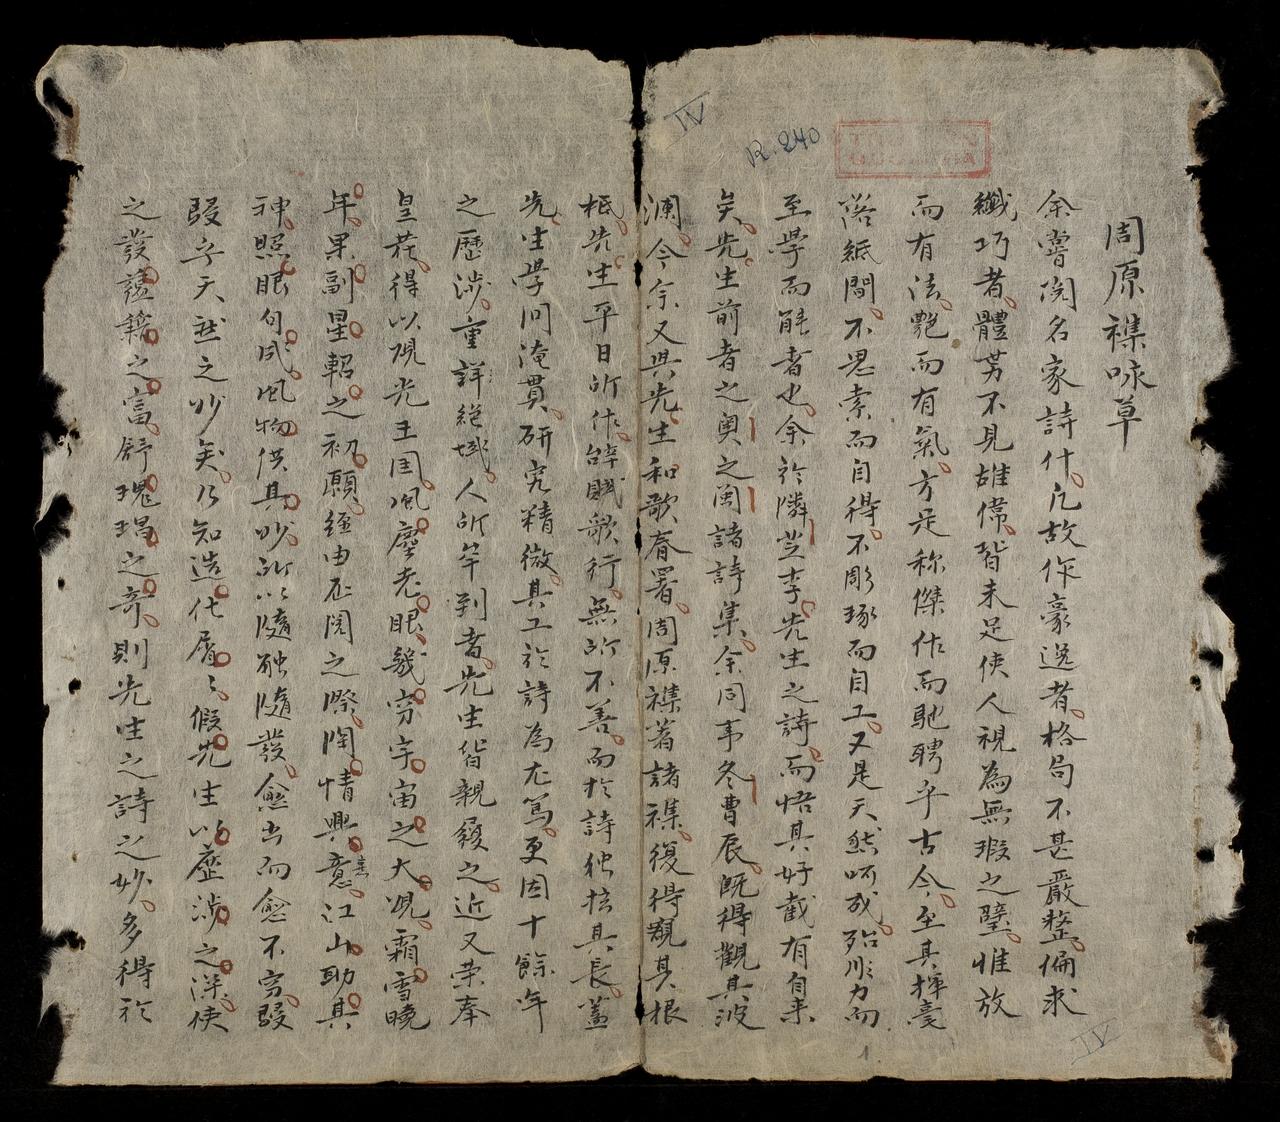 IV
R. 240
周原襍咏草
余嘗閱名家詩什凡故作豪逸者格局不甚嚴整偏求
纖巧者體势不見雄偉皆未足使人視為無瑕之璧惟放
而有法艷而有氣方是称傑作而馳騁乎古今至其揮毫
落紙間不思索而自得不彫琢而自工又是天然呵成殆形力而
至學而能者也余於隣芝李先生之詩而悟其好截有自来
矣先生前者之奥之閩諸詩集余同事冬曹辰既得觀其波
瀾今余又與先生和歌春署周原襍著諸襍復得窺其根
柢先生平日所作辞賦歌行無所不善而於詩独擅其長蓋
先生學问淹貫研究精微其工於詩為尤篤更因十餘年
之歷涉重詳絕域人所罕到者先生皆親履之近又荣奉
皇花得以覌光王国風塵老眼幾穷宇宙之大覌霜雪曉
年果副星軺之初願經由在閲之際陶情興意江山助其
神照眼句成風物供其妙所以隨触隨發愈出而愈不穷
段字天然之妙矣乃知造化屑〻假先生以歷涉之深使
之發蘊籍之富舒瑰瑋之奇則先生之詩之妙多得於
IV